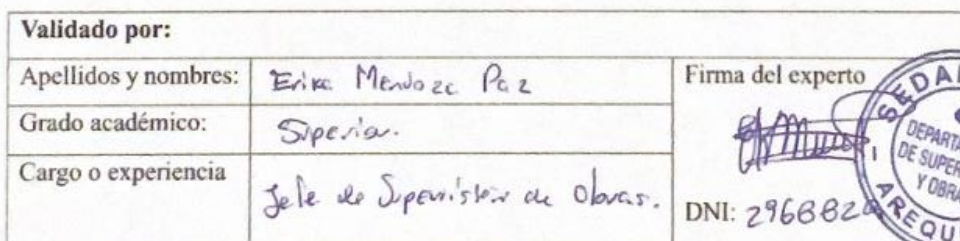 Validado por:
Apellidos y nombres: Erika Mendoza Paz
Firma del experto
Grado académico: Superior.
Cargo o experiencia Jefe de Supervisión de Obras.
DNI: 296882
SEDA
DEPARTA
DE SUPER
Y OBRA
AREQU